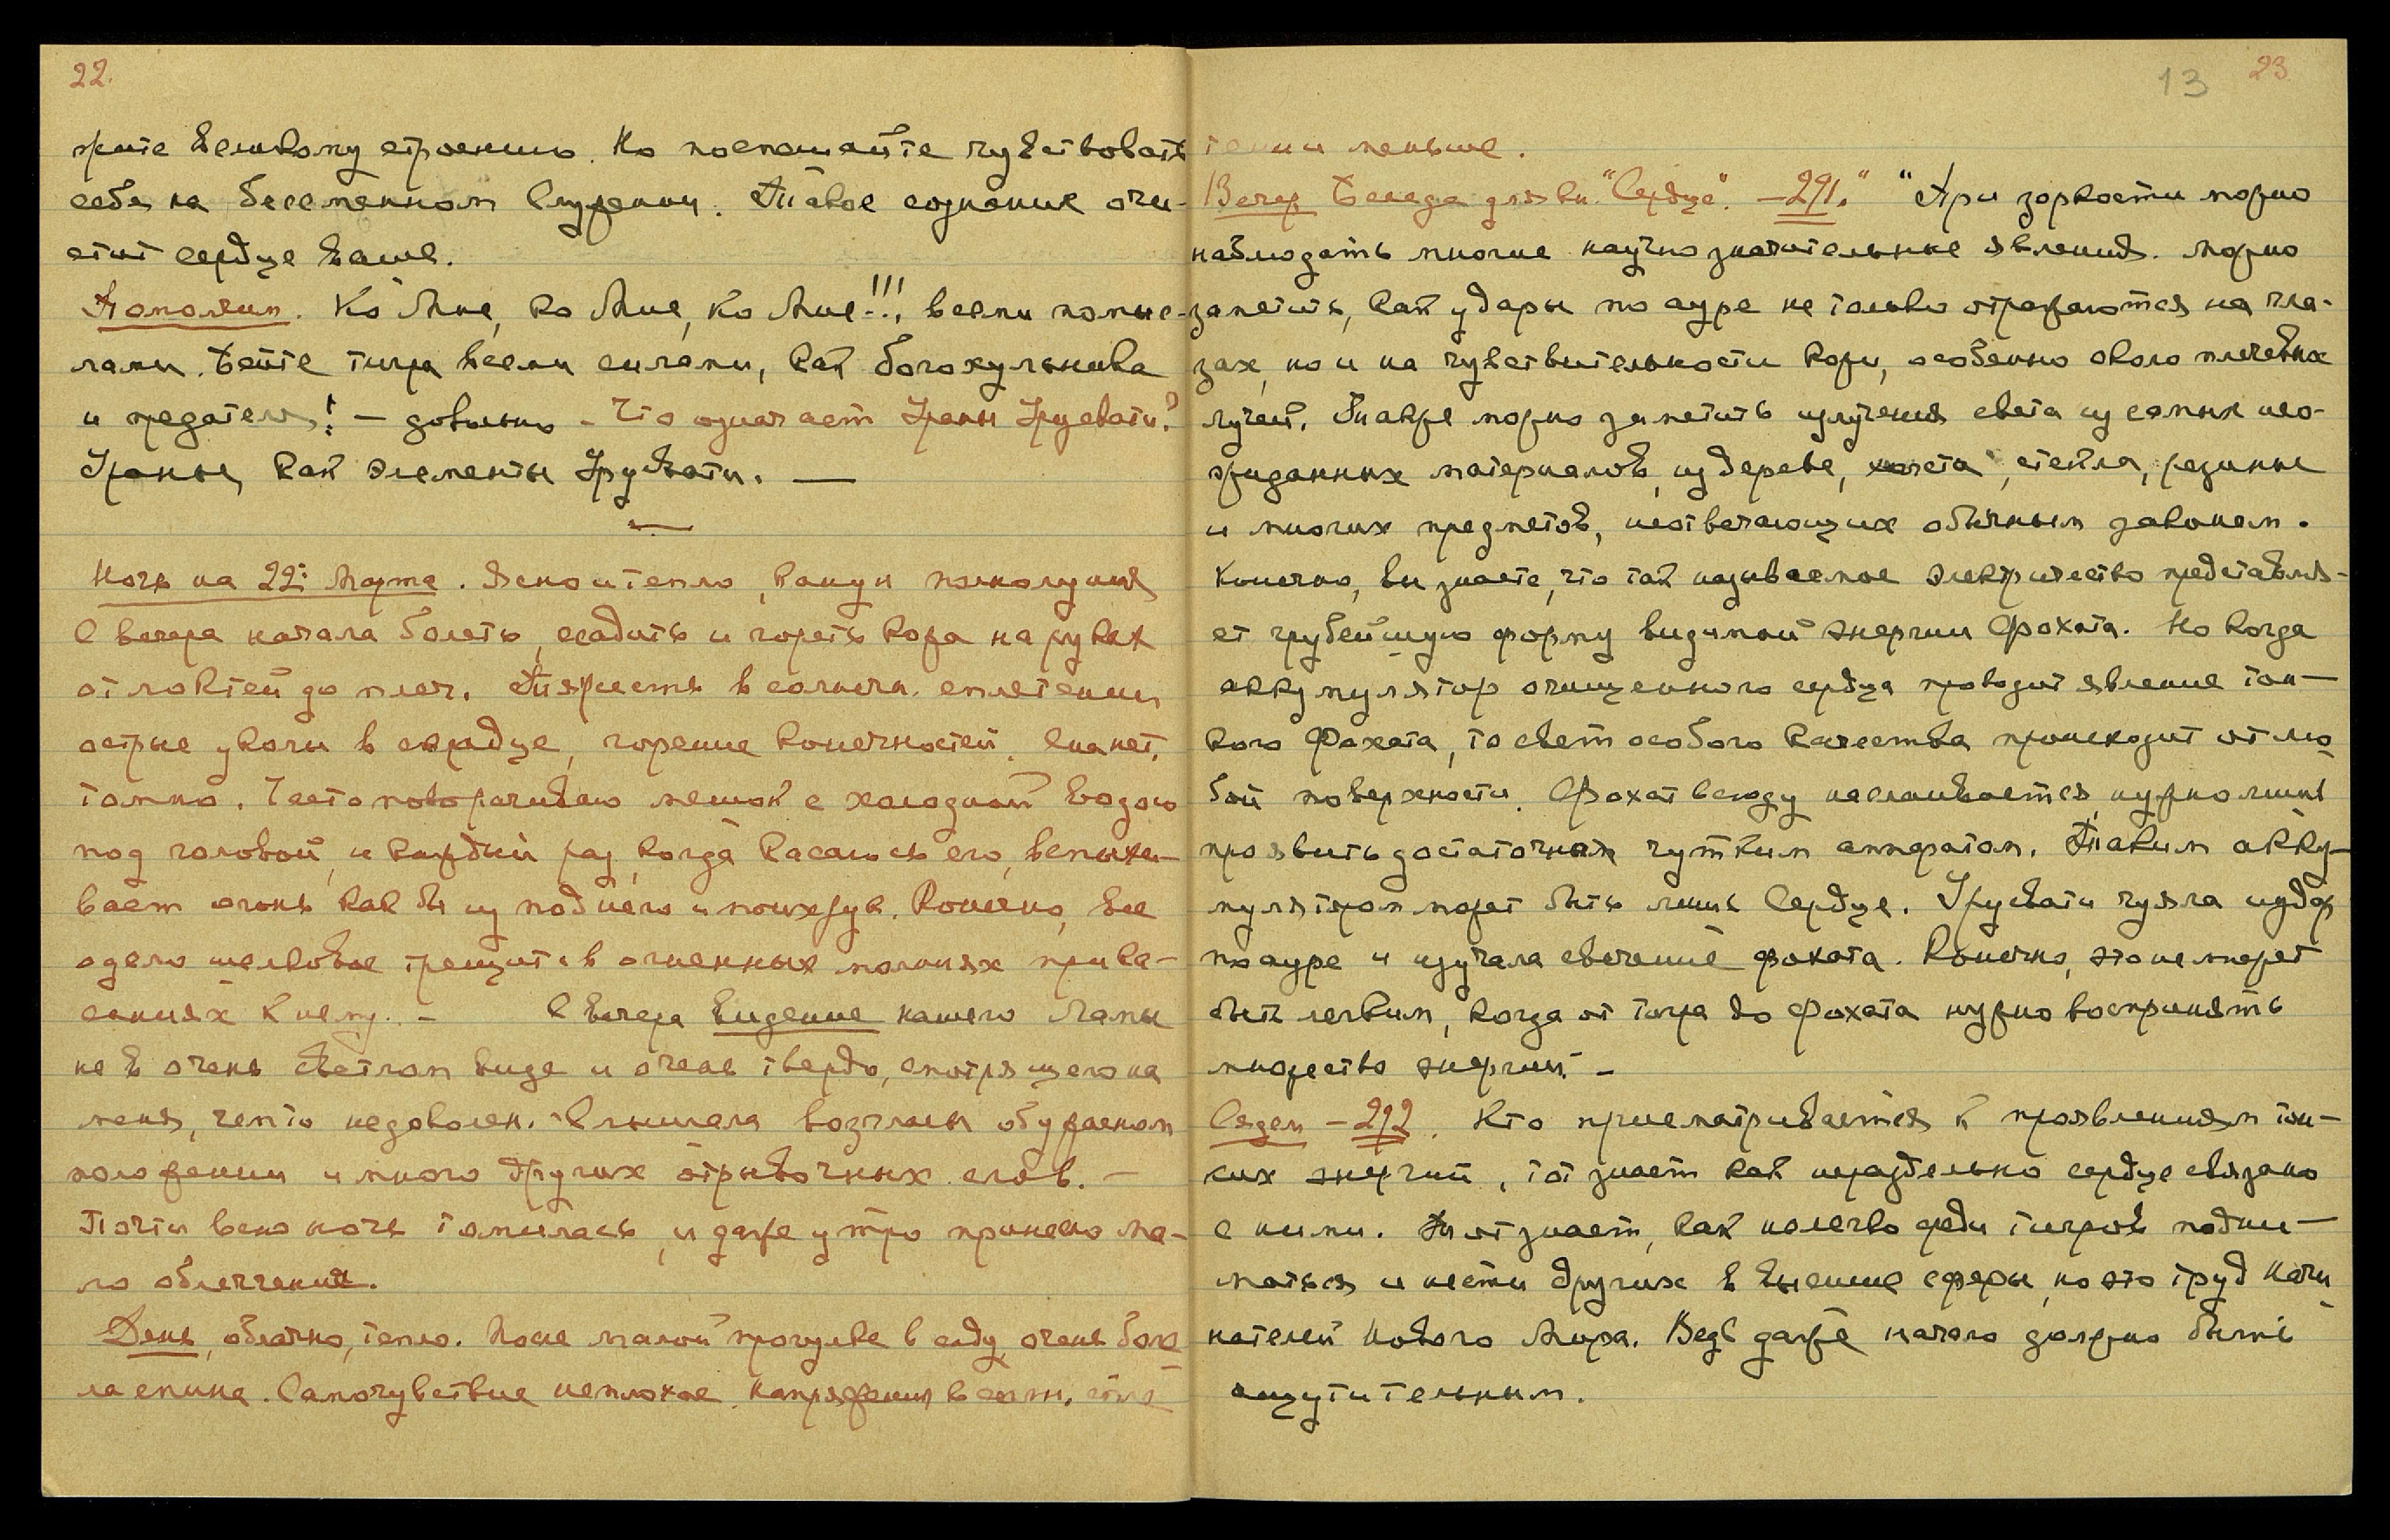 22.
жите великому строению. Но поспешайте чувствовать
себя на бессменном Служении. Такое сознание очи-
стит сердце ваше.
Помолчим. Ко Мне, ко Мне, ко Мне!!! всеми помыс-
лами. Бейте тигра всеми силами, как богохульника
и предателя! — довольно - Что означает Храны Урусвати?
Храны, как элементы Урусвати. —
Ночь на 22: Марта. Ясно и тепло, канун полнолуния
С вечера начала болеть, саднить и гореть кожа на руках
от локтей до плеч. Тяжесть в солнечн. сплетении
острые уколы в сердце, горение конечностей. Сна нет,
томно. Часто поворачиваю мешок с холодной водою
под головой, и каждый раз, когда касаюсь его, вспыхи-
вает огонь как бы из под него и
Конечно, все
одеяло шелковое трещит в огненных молниях прика-
саниях к нему. - С вечера видение нашего Ламы
не в очень светлом виде и очень твердо, смотрящего на
меня, чем то недоволен. Слышала возгласы об ужасном
положении и много других отрывочных слов. —
Почти всю ночь томилась, и даже утро принесло ма-
ло облегчения.
День, облачно, тепло. После малой прогулке в саду очень боле
ла спина. Самочувствие неплохое. Напряжения в солн. спле
13 23
тении меньше.
Вечер Беседа для кн. "Сердце". -291." "При зоркости можно
наблюдать многие научно значительные явления. Можно
заметить, как удары по ауре не только отражаются на гла-
зах, но и на чувствительности кожи, особенно около плечевых
лучей. Также можно заметить излучения света из самых нео-
жиданных материалов, из дерева, холста, стекла, резины
и многих предметов, неотвечающих обычным законам.
Конечно, вы знаете, что так называемое электричество представля-
ет грубейшую форму видимой энергии Фохата. Но когда
аккумулятор очищенного сердца проводит явление тон-
кого Фохата, то свет особого качества происходит от лю
бой поверхности. Фохат всюду наслаивается, нужно лишь
проявить достаточным чутким аппаратом. Таким акку-
мулятором может быть лишь Сердце. Урусвати чуяла удар
по ауре и изучала свечение фохата. Конечно, это не может
быть легким, когда от тигра до Фохата нужно воспринять
множество энергий. -
Седем - 292. Кто присматривается к проявлениям тон-
ких энергий, тот знает как нераздельно сердце связано
с ними. Тот знает, как нелегко среди тигров подни-
маться и нести других в высшие сферы, но это труд начи
нателей Нового Мира. Ведь даже начало должно быть
ощутительным.